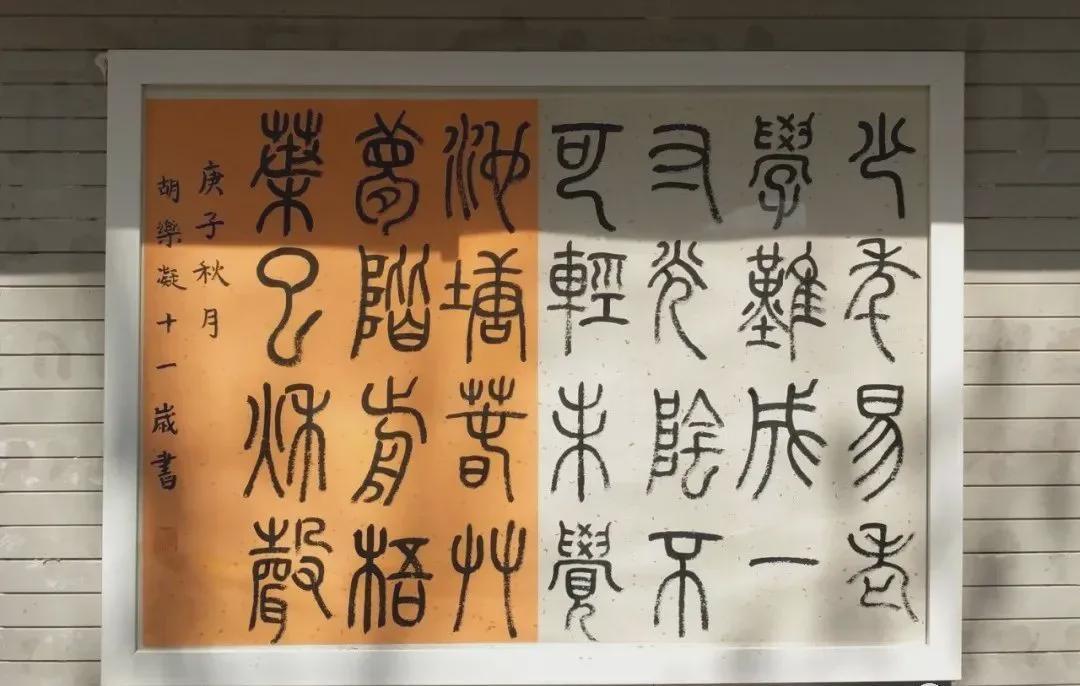 少年易老
學難成一
寸光陰不
可輕未覺
池塘春草
夢階前梧
葉已秋聲
庚子秋月
胡樂凝十一歲書